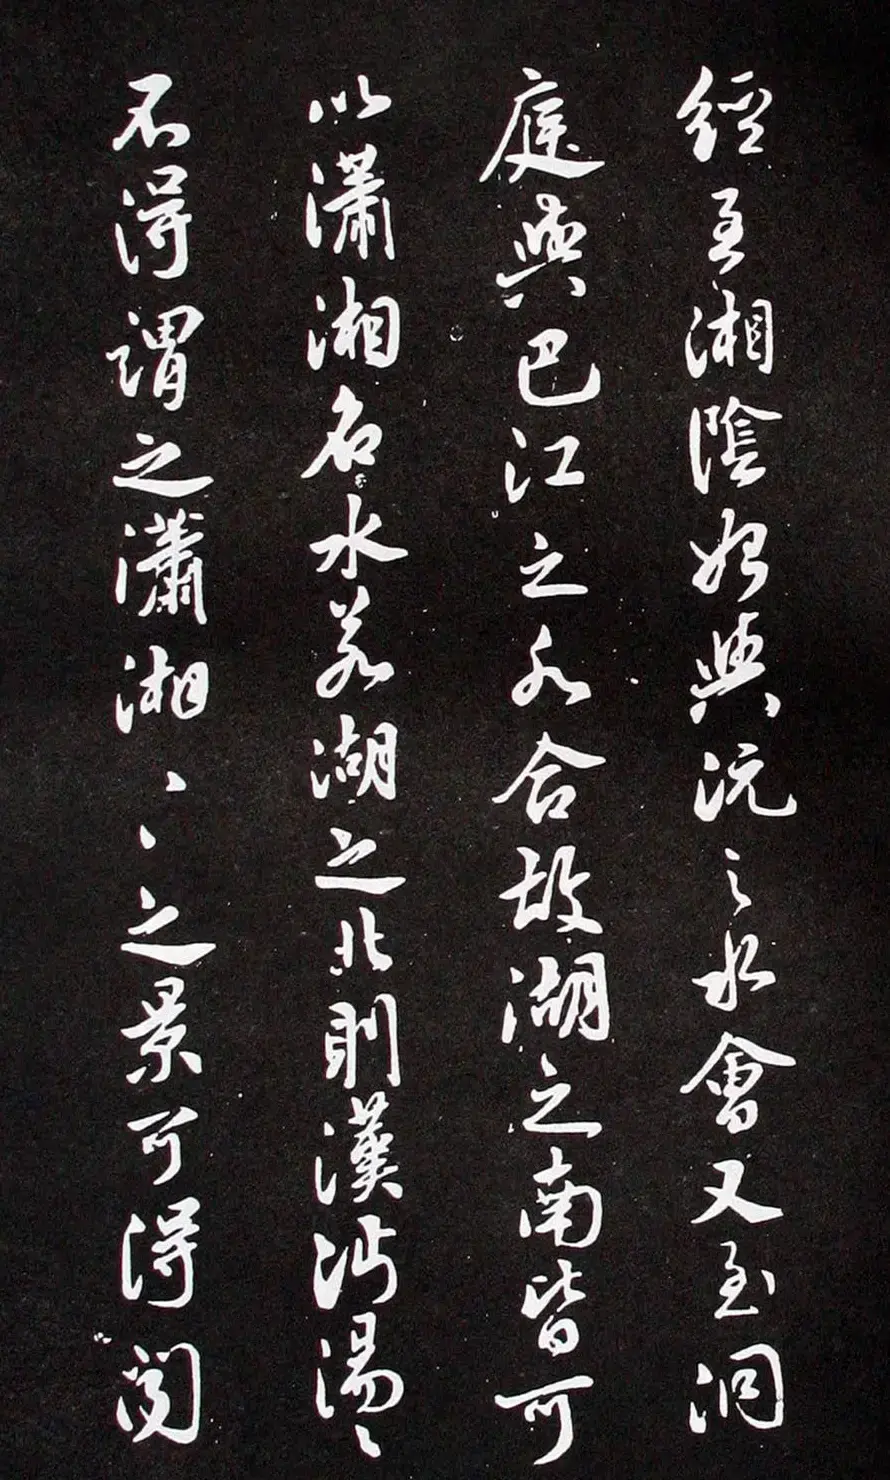 經至湘陰始與沅之水會又至洞
庭與巴江之水合故湖之南皆可
以瀟湘名水若湖之北則漢沔湯〻
不得謂之瀟湘〻〻之景可得聞